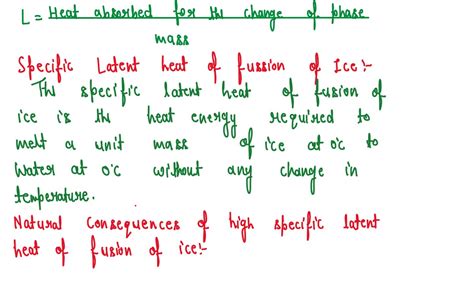 L = Heat absorbed for the change of phase
mass
Specific Latent heat of fussion of Ice:-
The specific latent heat of fusion of
ice is the heat energy required to
melt a unit mass of ice at 0°c to
Water at 0°c without any change in
temperature.
Natural Consequences of high specific latent
heat of fusion of ice:-